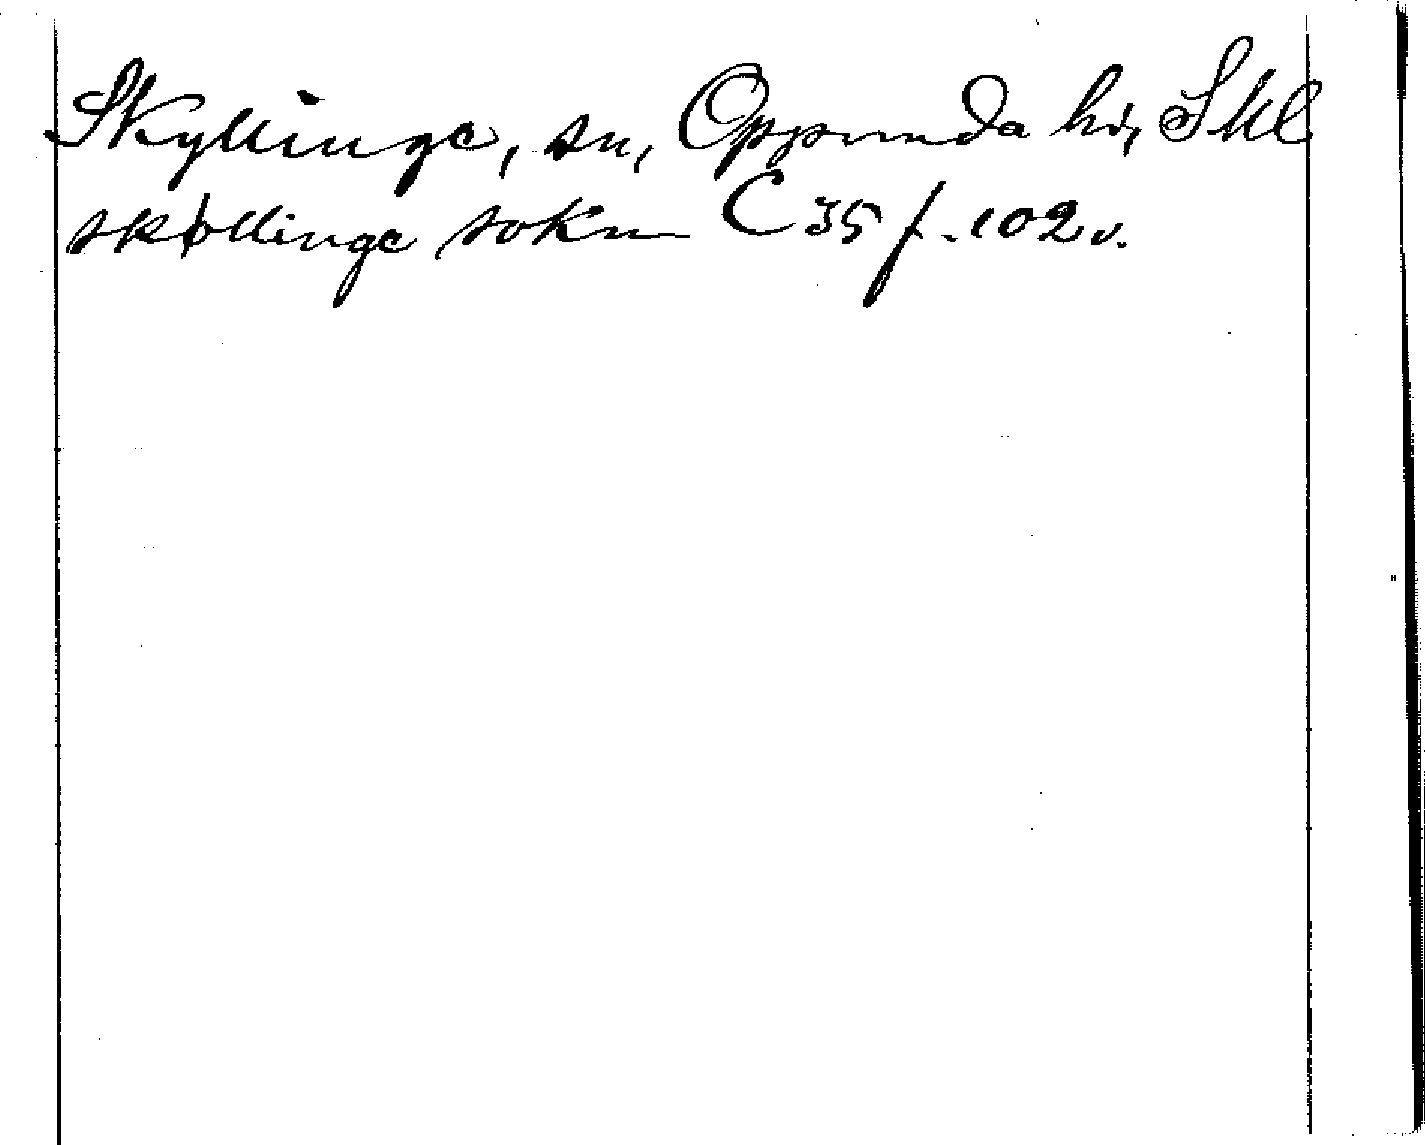 Skyllinge, sn, Oppunda hd, Skl
skøllinge sokn C 35 f. 102 v.